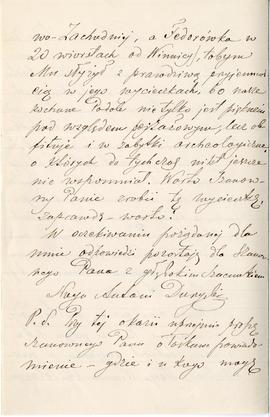 wo-Zachodniej, a Fedorówka w
20 wiorstach od Winnicy, tobym
Mu służył z prawdziwą przyjemno
ścią w jego wycieczkach, bo nasze
kochane Podole nie tylko jest pięknem
pod względem pejzażowym, lecz ob
fituje i w zabytki archeologiczne
o których do tychczas nikt jeszcze
nie wspomniał. Warto Szanow
ny Panie zrobić tę wycieczkę,
zaprawdę – warto!
W oczekiwaniu pożądanej dla
mnie odpowiedzi pozostaję dla Szanow
nego Pana z głębokim szacunkiem
Antoni
P.S. Przy tej okazii uprzejmie proszę
Szanownego Pana o łaskawe powiado
mienie – gdzie i u kogo mogę